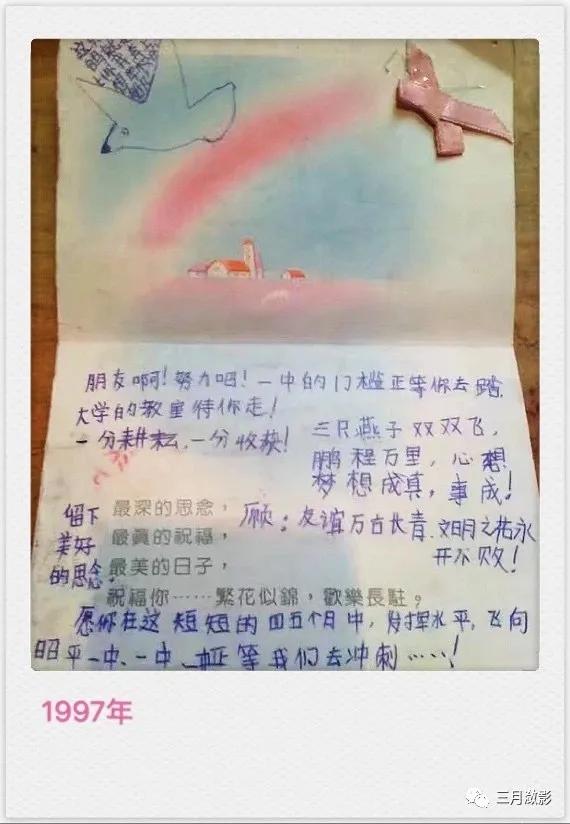 朋友啊!努力吧!一中的门槛正等你去踏,
大学的教室待你走!
一分耕耘,一分收获!
三只燕子双双飞,
鹏程万里,心想
梦想成真,事成!
留下
美好
的思念.
最深的思念,
最眞的祝福,
最美的日子,
祝福你……繁花似錦,歡樂長駐。
愿:友谊万古长青.之永
开不败!
愿你在这短短的四五个月中,发挥水平,飞向
昭平一中.一中正等我们去冲刺……!
1997年
三月溦影